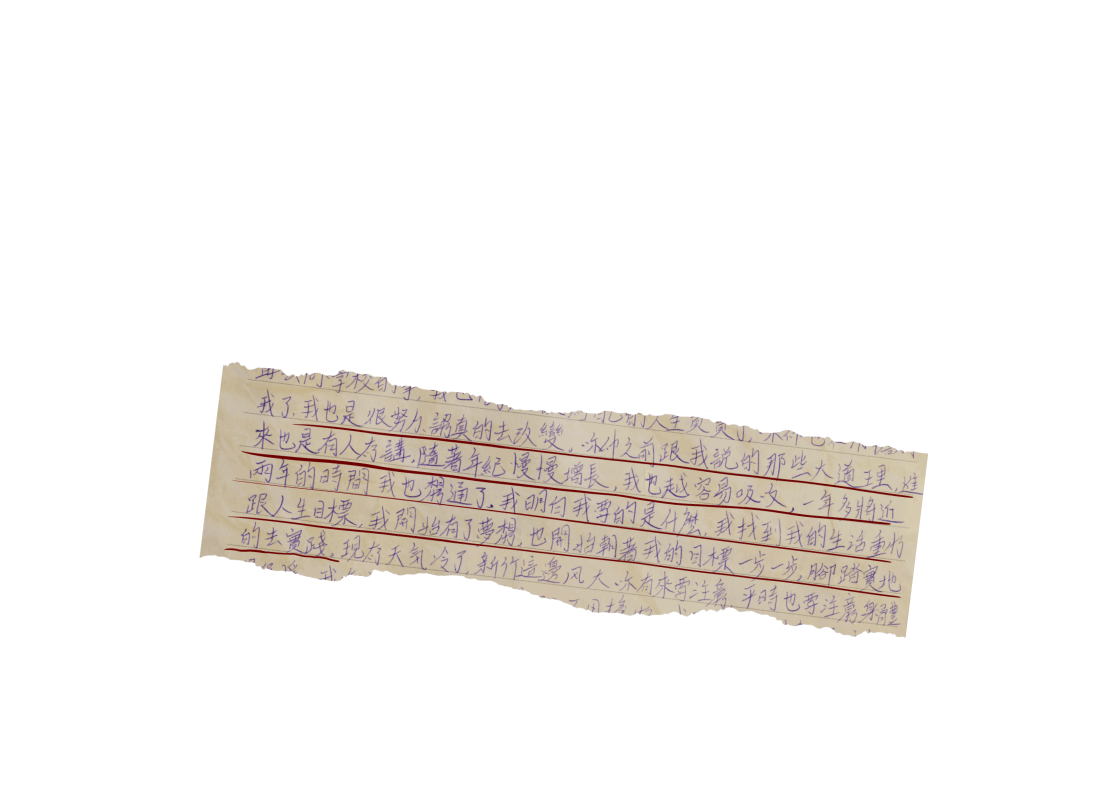 學校的事,我也
我了,我也是很努力,認真的去改變。你們之前跟我說的那些大道理,進
來也是有人在講,隨著年紀慢慢增長,我也越容易吸收,一年多將近
兩年的時間我也想通了,我明白我要的是什麼,我找到我的生活重心
跟人生目標,我開始有了夢想,也開始朝著我的目標一步一步,腳踏實地
的去實踐,現在天氣冷了,新竹這邊風大,你有來要注意,平時也要注意身體
我